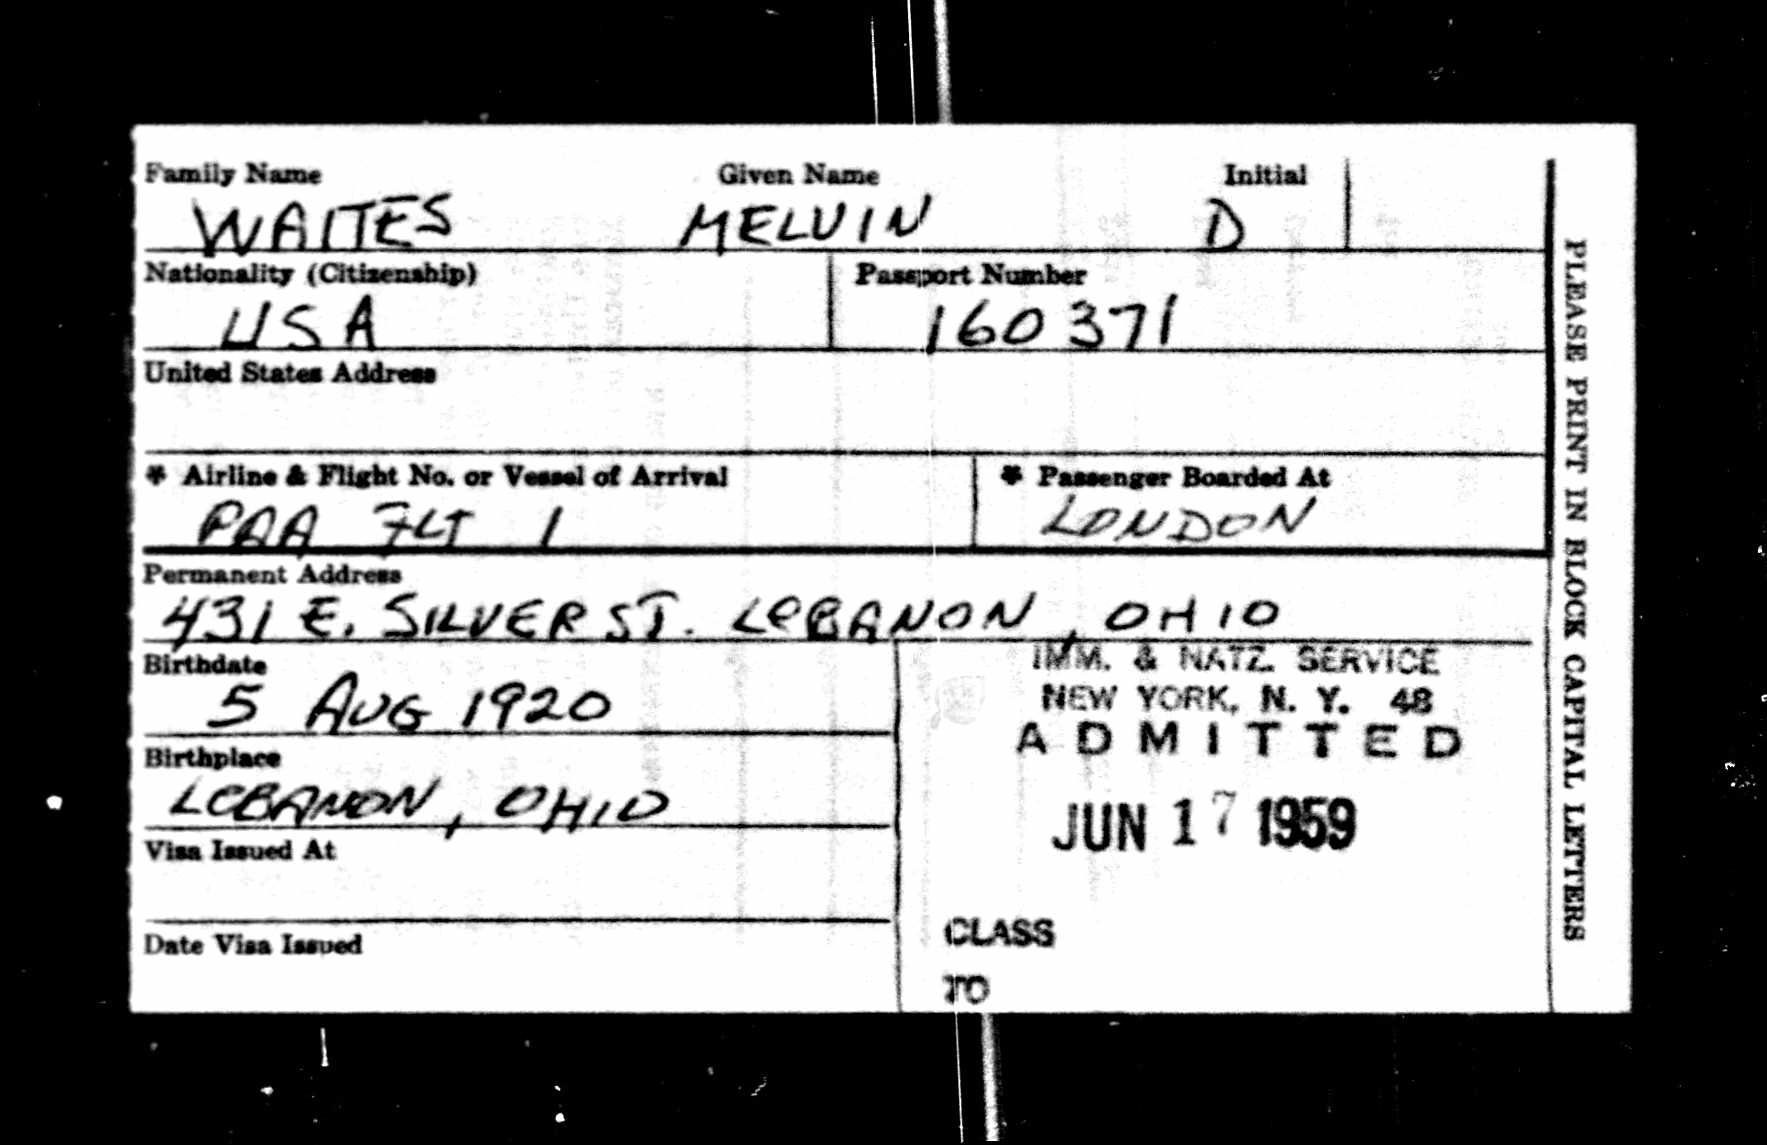 Family Name Given Name Initial
WAITES MELVIN D
Nationality (Citizenship) Passport Number
USA 160371
United States Address
* Airline & Flight No. or Vessel of Arrival * Passenger Boarded At
PAA FLT 1 LONDON
Permanent Address
431 E. SILVER ST. LEBANON, OHIO
Birthdate
5 AUG 1920
Birthplace
LEBANON, OHIO
Visa Issued At
Date Visa Issued
IMM. & NATZ. SERVICE
NEW YORK, N. Y. 48
ADMITTED
JUN 17 1959
CLASS
TO
PLEASE PRINT IN BLOCK CAPITAL LETTERS